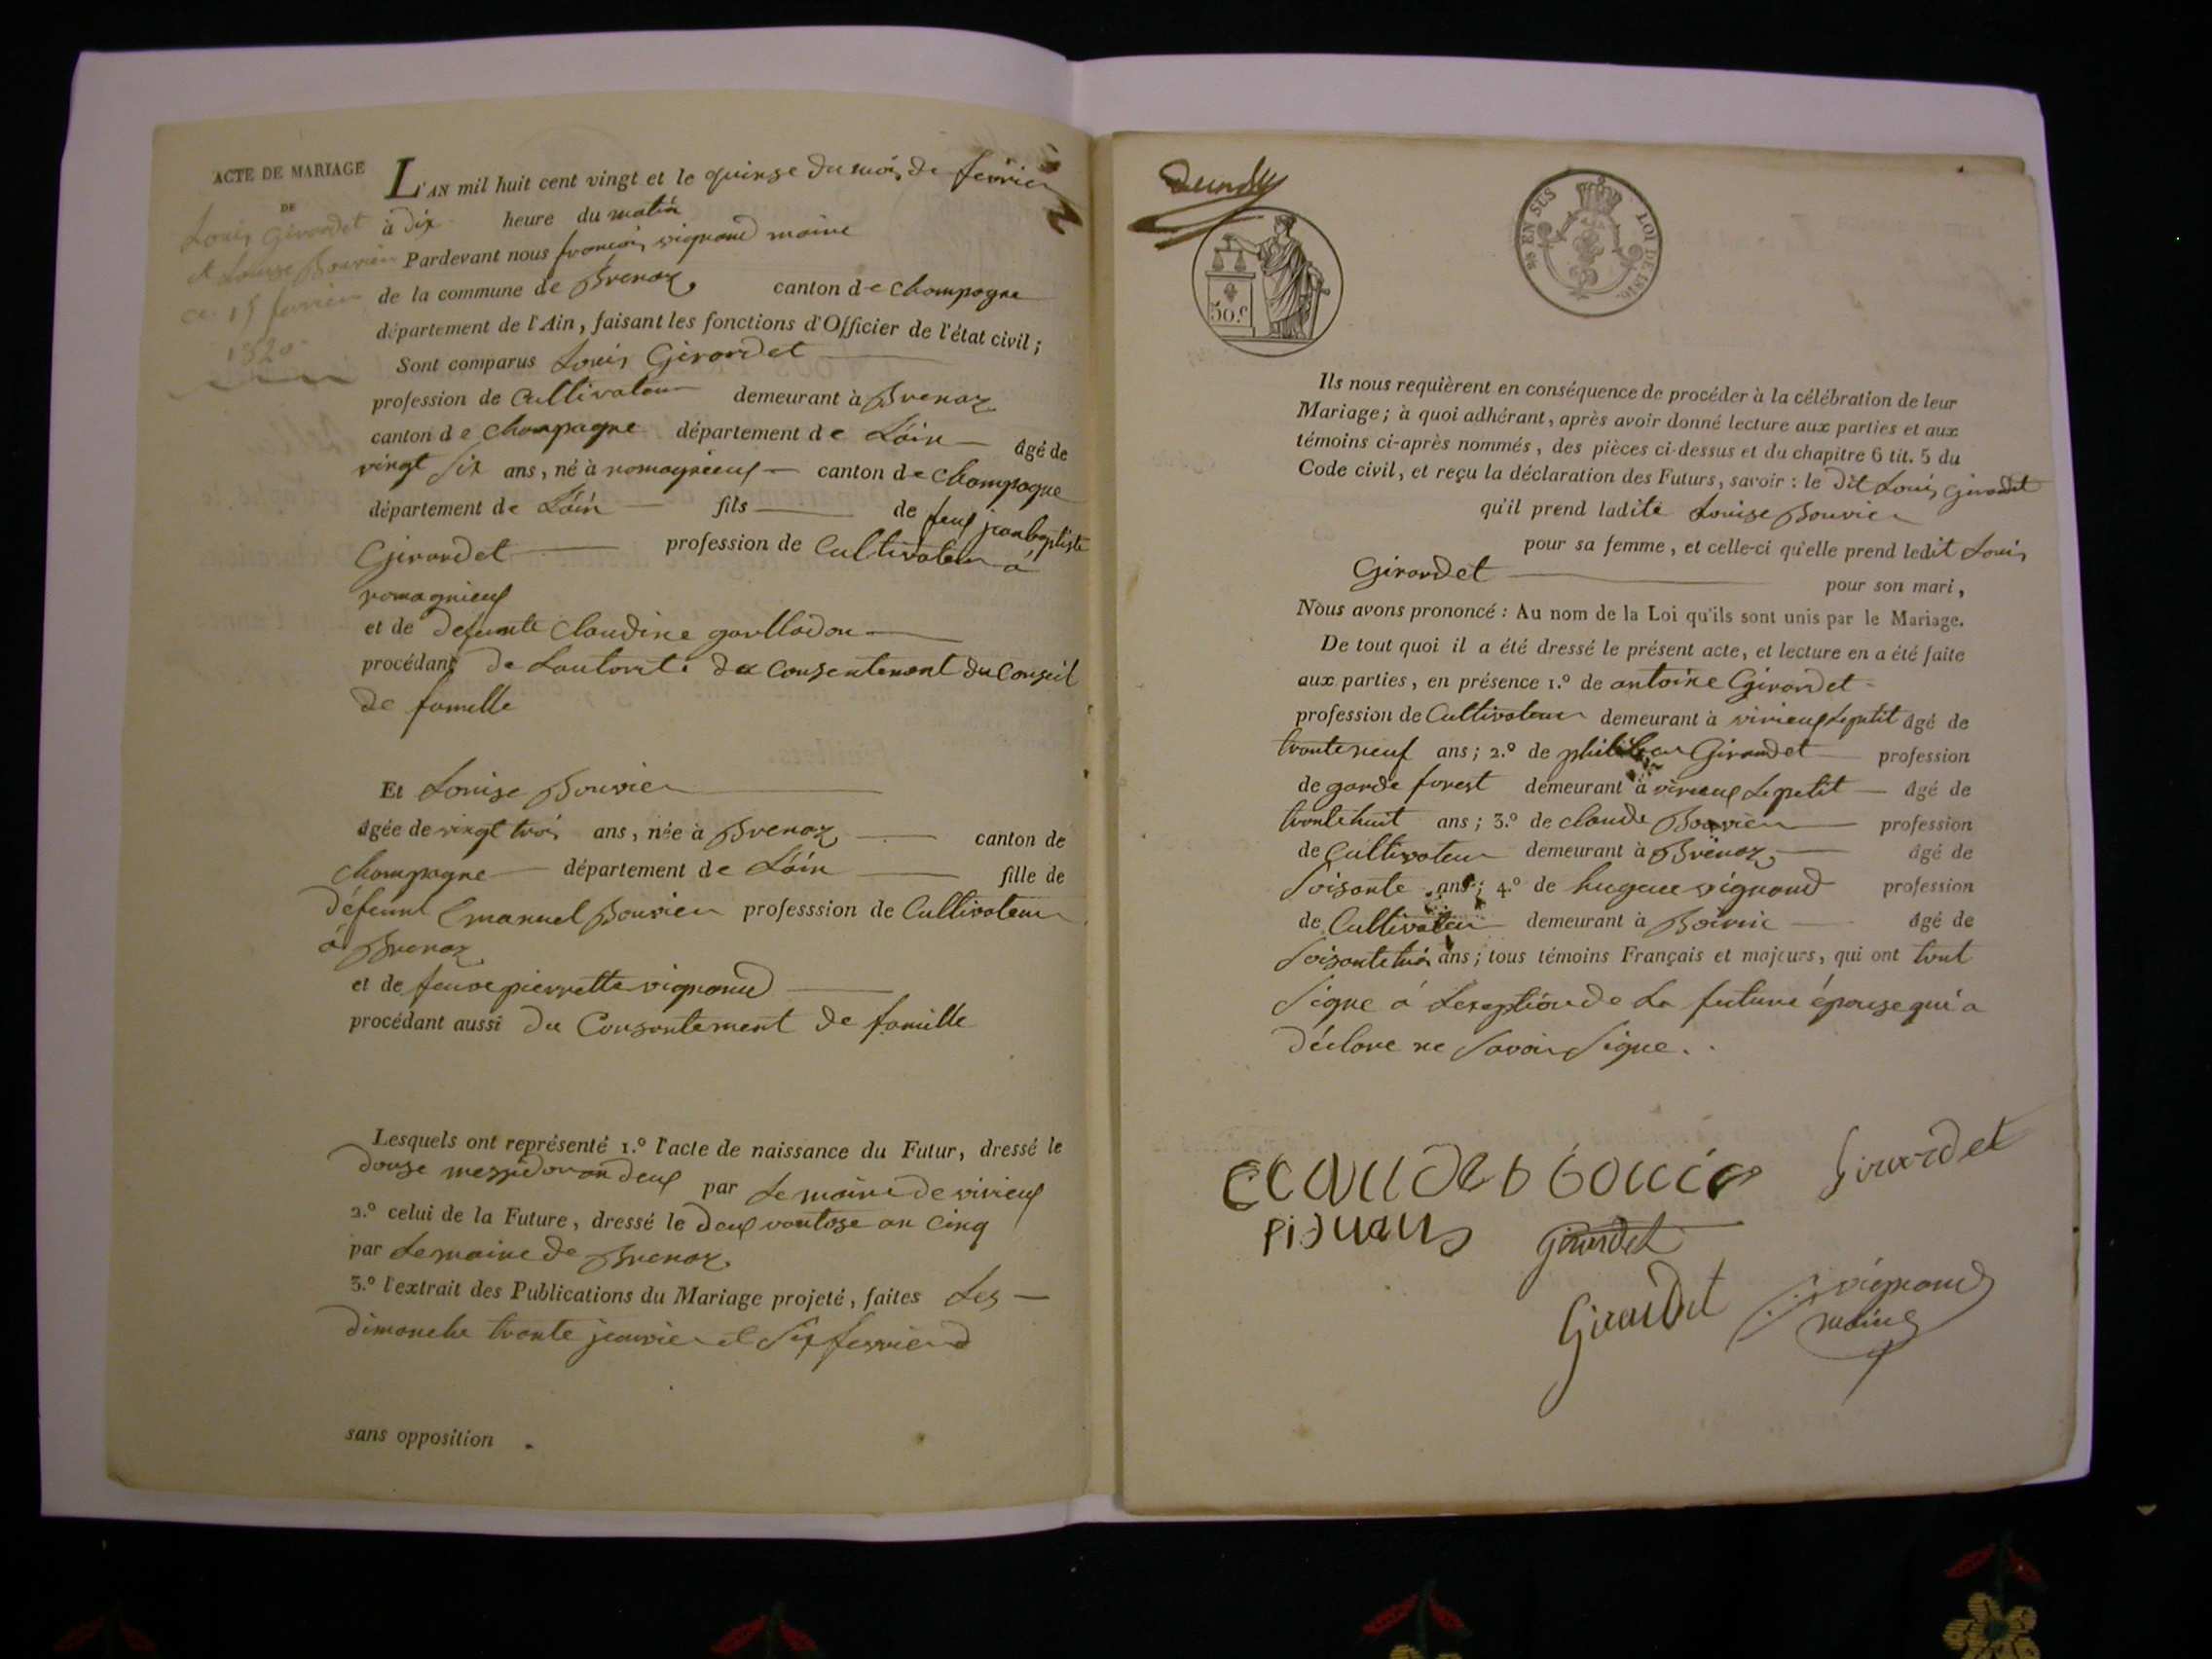 ACTE DE MARIAGE
DE
Louis Girardet
et Louise Bouvier
ce 15 fevrier
1820
L'AN mil huit cent vingt et le quinze du mois de fevrier
à dix heure du matin
Pardevant nous francois vignaud maire
de la commune de Brenaz canton de Champagne
département de l'Ain, faisant les fonctions d'Officier de l'état civil;
Sont comparus Louis Girardet
profession de Cultivateur demeurant à Brenaz
canton de Champagne département de L'ain âgé de
vingt six ans, né à romagnieux canton de Champagne
département de L'ain fils de feux jean baptiste
Girardet profession de Cultivateur a
romagnieux
et de defunte Claudine
procédant de Lautorité du Consentement du Conseil
de famille
Et Louise Bouvier
âgée de vingt trois ans, née à Brenaz canton de
Champagne département de L'ain fille de
défeunt Emanuel Bouvier professsion de Cultivateur
a Brenaz
et de feuve pierrette vignaud
procédant aussi du Consentement de famille
Lesquels ont représenté 1.º l'acte de naissance du Futur, dressé le
douze messidor an deux par Le maire de virieux
2.º celui de la Future, dressé le deux ventose an Cinq
par Le maire de Brenaz
3.º l'extrait des Publications du Mariage projeté, faites Les
dimanche trente janvier et Six fevrier
sans opposition
50.c
25 EN SUS LOI DE 1816.
Ils nous requièrent en conséquence de procéder à la célébration de leur
Mariage; à quoi adhérant, après avoir donné lecture aux parties et aux
témoins ci-après nommés, des pièces ci-dessus et du chapitre 6 tit. 5 du
Code civil, et reçu la déclaration des Futurs, savoir: le dit Louis Girardet
qu'il prend ladite Louise Bouvier
pour sa femme, et celle-ci qu'elle prend ledit Louis
Girardet pour son mari,
Nous avons prononcé: Au nom de la Loi qu'ils sont unis par le Mariage.
De tout quoi il a été dressé le présent acte, et lecture en a été faite
aux parties, en présence 1.º de antoine Girardet
profession de Cultivateur demeurant à virieux Lepetit âgé de
trente neuf ans; 2.º de Girardet profession
de garde forest demeurant à virieux Lepetit âgé de
trente huit ans; 3.º de claude Bouvier profession
de Cultivateur demeurant à Brenaz âgé de
Soisante ans; 4.º de vignaud profession
de Cultivateur demeurant à âgé de
ans; tous témoins Français et majeurs, qui ont tout
Signe a Lexeption de La future épouse qui a
déclare ne Savoir Signe.
Girardet
Girardet
Girardet vignaud
maire